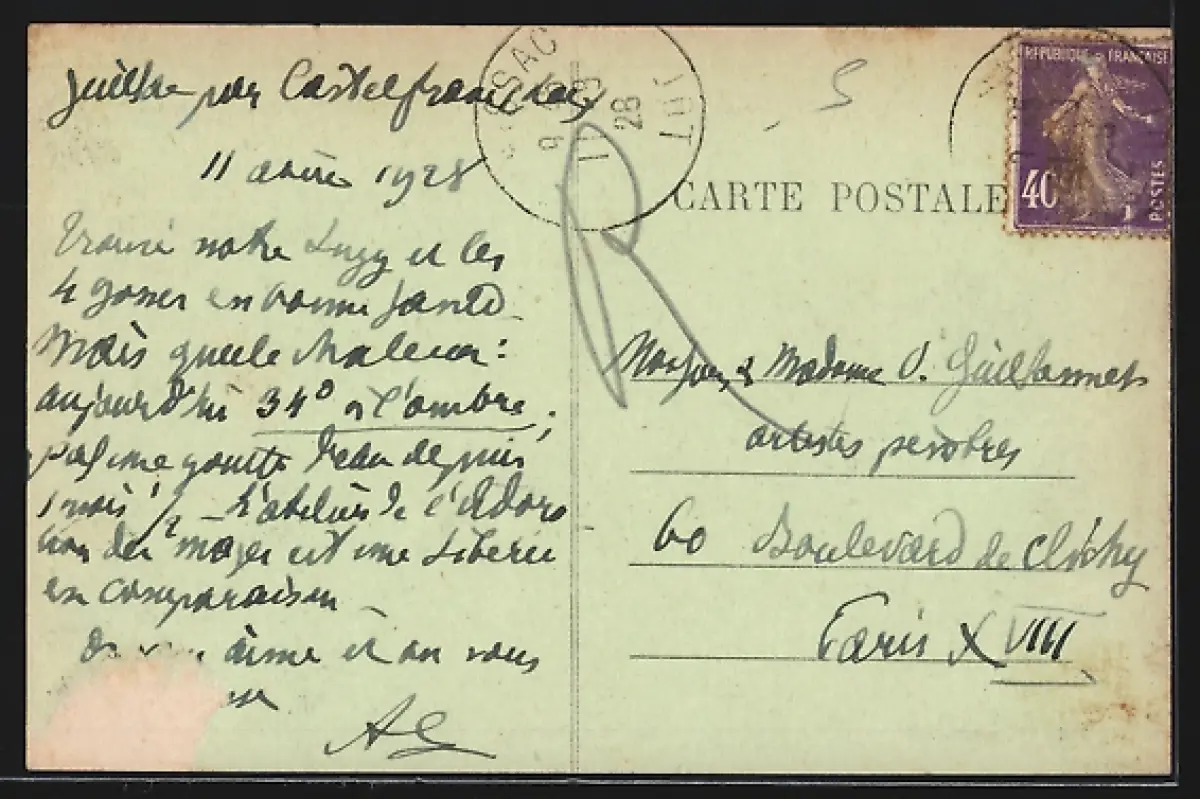 par Castelfranc (Lot)
11 1928
Trouvé notre Suzy et les
4 gosses en bonne santé
Mais quelle chaleur :
aujourd'hui 34° à l'ombre ;
pas une goutte d'eau depuis
1 mois 1/2 – L'atelier de l'Adora
tion des mages est une Sibérie
en comparaison
aime et on vous
AG
28
CARTE POSTALE
REPUBLIQUE FRANÇAISE
40
POSTES
Monsieur & Madame O. Guillonnet
artistes peintres
60 Boulevard de Clichy
Paris XVIII